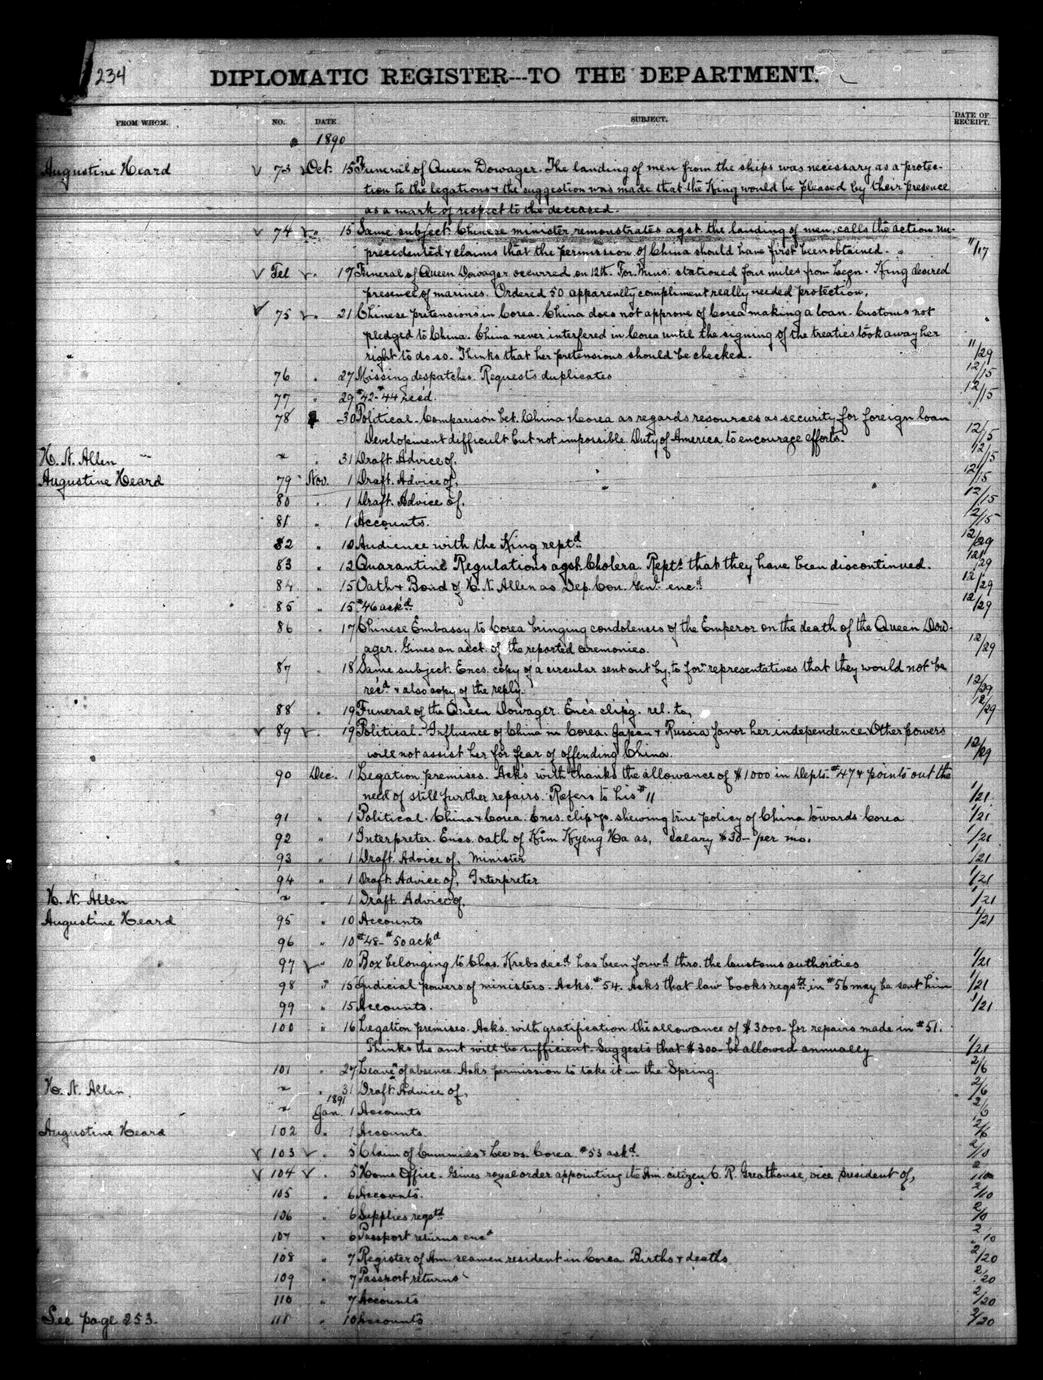 234
DIPLOMATIC REGISTER---TO THE DEPARTMENT.
FROM WHOM. NO. DATE SUBJECT. DATE OF RECEIPT.
1890
Augustine Heard 73 Oct. 15 Funeral of Queen Dowager. The landing of men from the ships was necessary as a protec-
tion to the legations & the suggestion was made that the King would be pleased by their presence
as a mark of respect to the deceased.
74 " 15 Same subject. Chinese minister remonstrates agst. the landing of men, calls the action un-
precedented & claims that the permission of China should have first been obtained. 11/17
Tel " 17 Funeral of Queen Dowager occurred on 12th. For. Mins. stationed four miles from Legn. King desired
presence of marines. Ordered 50 apparently compliment really needed protection.
75 " 21 Chinese pretensions in Corea. China does not approve of Corea making a loan. Customs not
pledged to China. China never interfered in Corea until the signing of the treaties took away her
right to do so. Thinks that her pretensions should be checked. 11/29
76 " 27 Missing despatches. Requests duplicates 12/15
77 " 29 #42-#44 rec'd. 12/15
78 " 30 Political. Comparison bet. China & Corea as regards resources as security for foreign loan
Development difficult but not impossible. Duty of America to encourage efforts. 12/15
H. N. Allen " 31 Draft. Advice of. 12/15
Augustine Heard 79 Nov. 1 Draft. Advice of. 12/15
80 " 1 Draft. Advice of. 12/15
81 " 1 Accounts. 12/15
82 " 10 Audience with the King reptd. 12/29
83 " 12 Quarantine Regulations agst. Cholera. Repts. that they have been discontinued. 12/29
84 " 15 Oath & Bond of H. N. Allen as Dep. Con. Genl. encd. 12/29
85 " 15 #46 ackd. 12/29
86 " 17 Chinese Embassy to Corea bringing condolences of the Emperor on the death of the Queen Dow-
ager. Gives an acct. of the reported ceremonies. 12/29
87 " 18 Same subject. Encs. copy of a circular sent out by, to forn. representatives that they would not be
rec'd. & also copy of the reply. 12/29
88 " 19 Funeral of the Queen Dowager. Encs. clipg. rel. to, 12/29
89 " 19 Political. Influence of China in Corea. Japan & Russia favor her independence. Other powers
will not assist her for fear of offending China. 12/29
90 Dec. 1 Legation premises. Acks. with thanks the allowance of $1000 in Depts. #47 & points out the
need of still further repairs. Refers to his #11 1/21
91 " 1 Political. China & Corea. Encs. clipg. shewing true policy of China towards Corea 1/21
92 " 1 Interpreter. Encs. oath of Kim Kyeng Ha as, Salary $30- per mo. 1/21
93 " 1 Draft. Advice of, Minister 1/21
94 " 1 Draft. Advice of, Interpreter 1/21
H. N. Allen " 1 Draft. Advice of. 1/21
Augustine Heard 95 " 10 Accounts 1/21
96 " 10 #48-#50 ackd
97 " 10 Box belonging to Chas. Krebs decd. has been forwd. thro. the Customs authorities 1/21
98 " 15 Judicial powers of ministers. Acks. #54. Asks that law books reqstd. in #56 may be sent him 1/21
99 " 15 Accounts. 1/21
100 " 16 Legation premises. Acks. with gratification the allowance of $3000- for repairs made in #51.
Thinks the amt will be sufficient. Suggests that $300- be allowed annually 1/21
101 " 27 Leave of absence. Asks permission to take it in the Spring. 2/6
H. N. Allen. " 31 Draft. Advice of, 2/6
1891
Jan. 1 Accounts 2/6
Augustine Heard 102 " 1 Accounts. 2/6
103 " 5 Claim of Cummins & Lee vs. Corea. #53 ackd. 2/10
104 " 5 Home Office. Gives royal order appointing its Am. citizen C. R. Greathouse, vice president of, 2/10
105 " 6 Accounts. 2/10
106 " 6 Supplies reqstd 2/10
107 " 6 Passport returns encd 2/10
108 " 7 Register of Am. seamen resident in Corea. Births & deaths 2/20
109 " 7 Passport returns 2/20
110 " 7 Accounts 2/20
See page 253. 111 " 10 Accounts 2/20